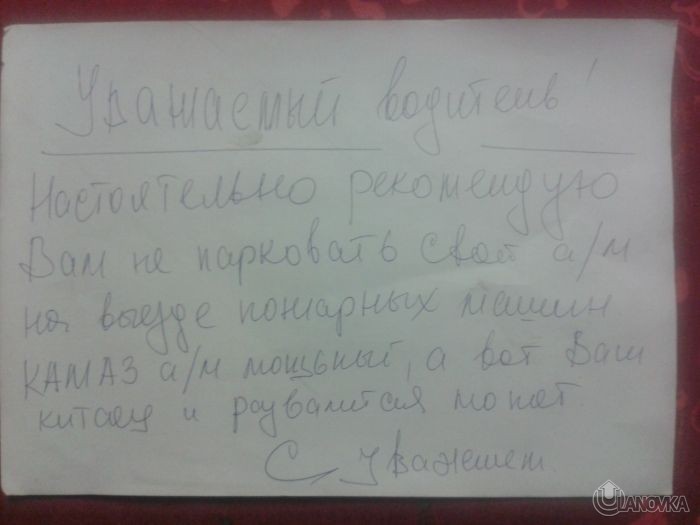 Уважаемый водитель!
Настоятельно рекомендую
Вам не парковать свой а/м
на выезде пожарных машин.
КАМАЗ а/м мощьный, а вот Ваш
китаец и развалится может.
С Уважением.
ULANOVKA